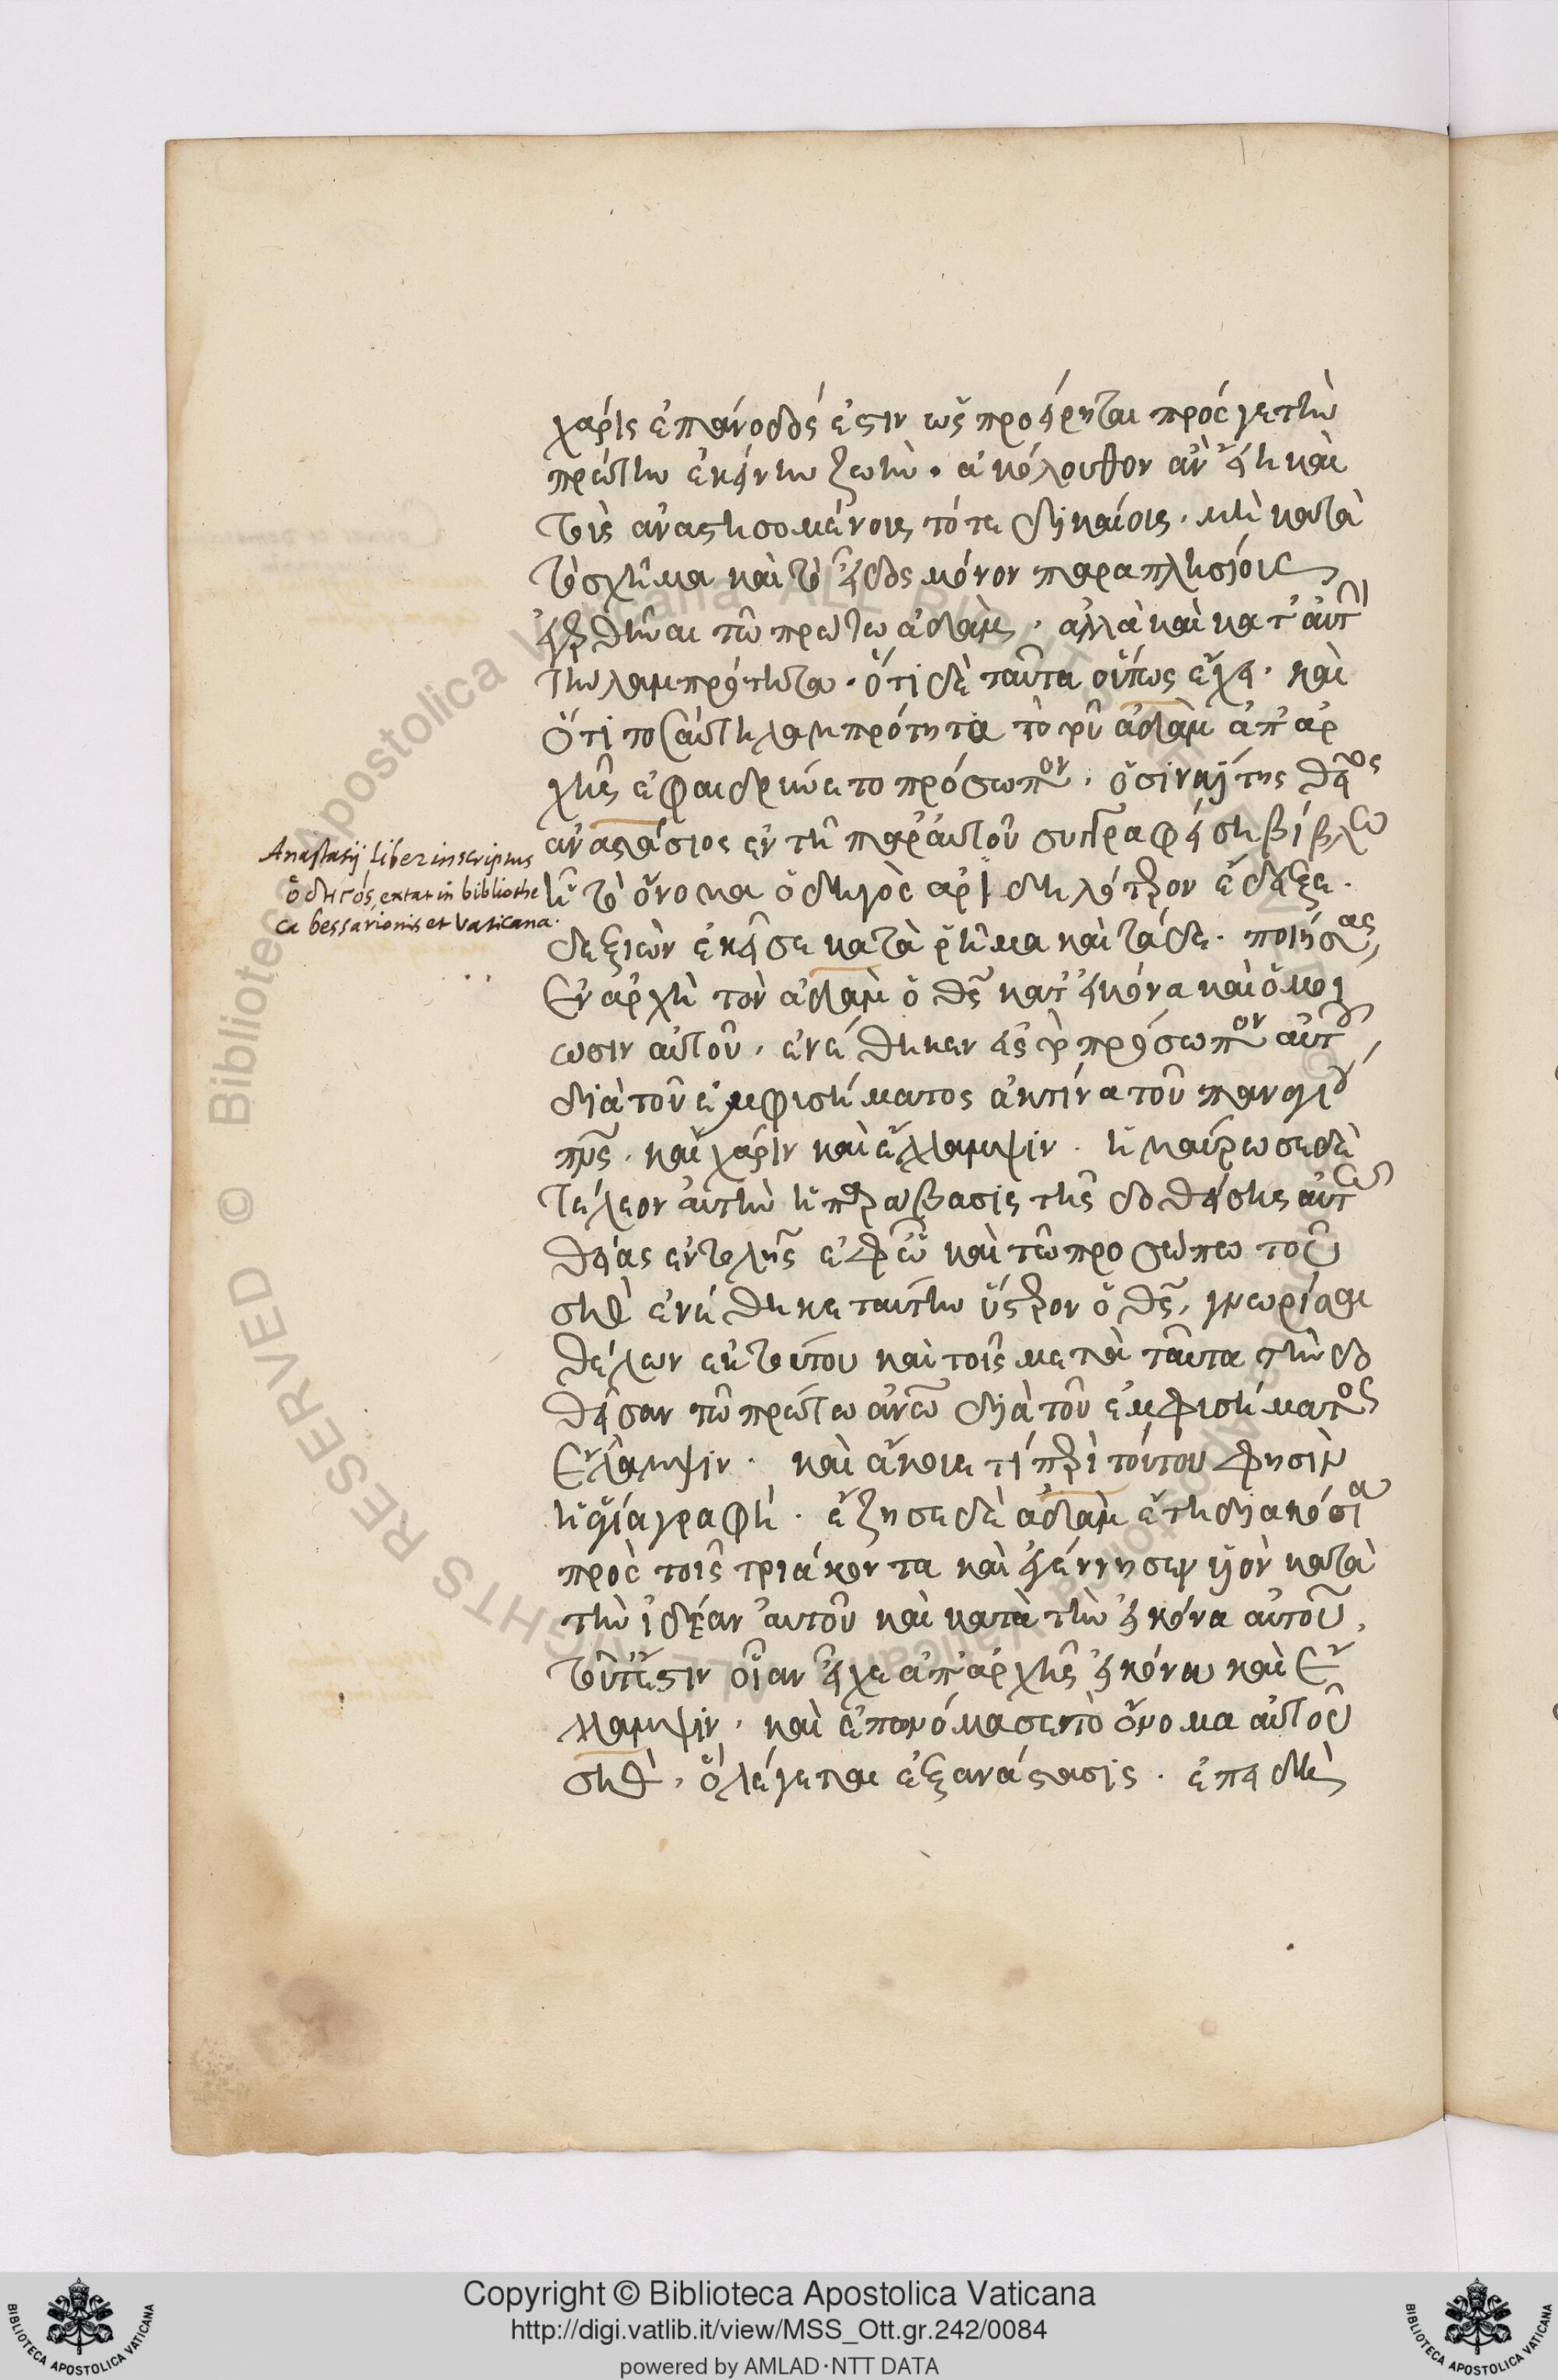 χάρις ἐπάνοδός ἐστιν ὡς προείρηται πρός γε τὴν
πρώτην ἐκείνην ζωὴν. ἀκόλουθον ἂν εἴη καὶ
τοῖς ἀναστησομένοις τότε δικαίοις. μὴ κατὰ
τὸ σχῆμα καὶ τὸ εἶδος μόνον παραπλησίοις
τῷ πρώτῳ ἀδὰμ. ἀλλὰ καὶ κατ' αὐτὴν
τὴν λαμπρότητα. ὅτι δὲ ταῦτα οὕτως ἔχει. καὶ
ὅτι τοσαύτη λαμπρότητι τὸ τοῦ ἀδὰμ ἀπ' ἀρ
χῆς ἐφαιδρύνετο πρόσωπον. ὁ σιναΐτης θεῖος
ἀναστάσιος ἐν τῇ παρ' αὐτοῦ συγγραφείσῃ βίβλω
ἧ τὸ ὄνομα ὁδηγὸς ἀριδηλότερον ἔδειξε.
δεξιὼν ἐκεῖσε κατὰ ῥῆμα καὶ τάδε. ποιήσας
ἐν ἀρχῇ τὸν ἀδὰμ ὁ θς κατ' εἰκόνα καὶ ὁμοί
ωσιν αὐτοῦ. ἐνέθηκεν εἰς τὸ πρόσωπον αὐτοῦ
διὰ τοῦ ἐμφυσήματος ἀκτίνα τοῦ παναγίου
πνς. καὶ χάριν καὶ ἔλλαμψιν. ἠμαύρωσε δὲ
τέλεον αὐτὴν ἡ παράβασις τῆς δοθείσης αὐτῶ
θείας ἐντολῆς ἐν τῷ προσώπῳ τοῦ
σὴθ ἐνέθηκε ταύτην ὕστερον ὁ θς, γνωρίσαι
θέλων ἐκ τούτου καὶ τοῖς μετὰ ταῦτα τὴν δο
θεῖσαν τῷ πρώτῳ ἀνω διὰ τοῦ ἐμφυσήματος
ἔλλαμψιν. καὶ ἄκουε τί περὶ τούτου φησὶν
ἡ ἁγία γραφή. ἔζησε δὲ ἀδὰμ ἔτη διακόσια
πρὸς τοῖς τριάκοντα καὶ ἐγέννησεν υἱὸν κατὰ
τὴν ἰδέαν αὐτοῦ καὶ κατὰ τὴν εἰκόνα αὐτοῦ,
τοῦτέστιν οἵαν εἶχε ἀπ' ἀρχῆς εἰκόνα καὶ ἔλ
λαμψιν. καὶ ἐπωνόμασε τὸ ὄνομα αὐτοῦ
σὴθ, ὃ λέγεται ἐξανάστασις. ἐπειδὴ
Anastasij liber inscriptus
ὁδηγός, extat in bibliothe
ca bessarionis et Vaticana.
Copyright © Biblioteca Apostolica Vaticana
http://digi.vatlib.it/view/MSS_Ott.gr.242/0084
powered by AMLAD·NTT DATA
BIBLIOTECA APOSTOLICA VATICANA
BIBLIOTECA APOSTOLICA VATICANA